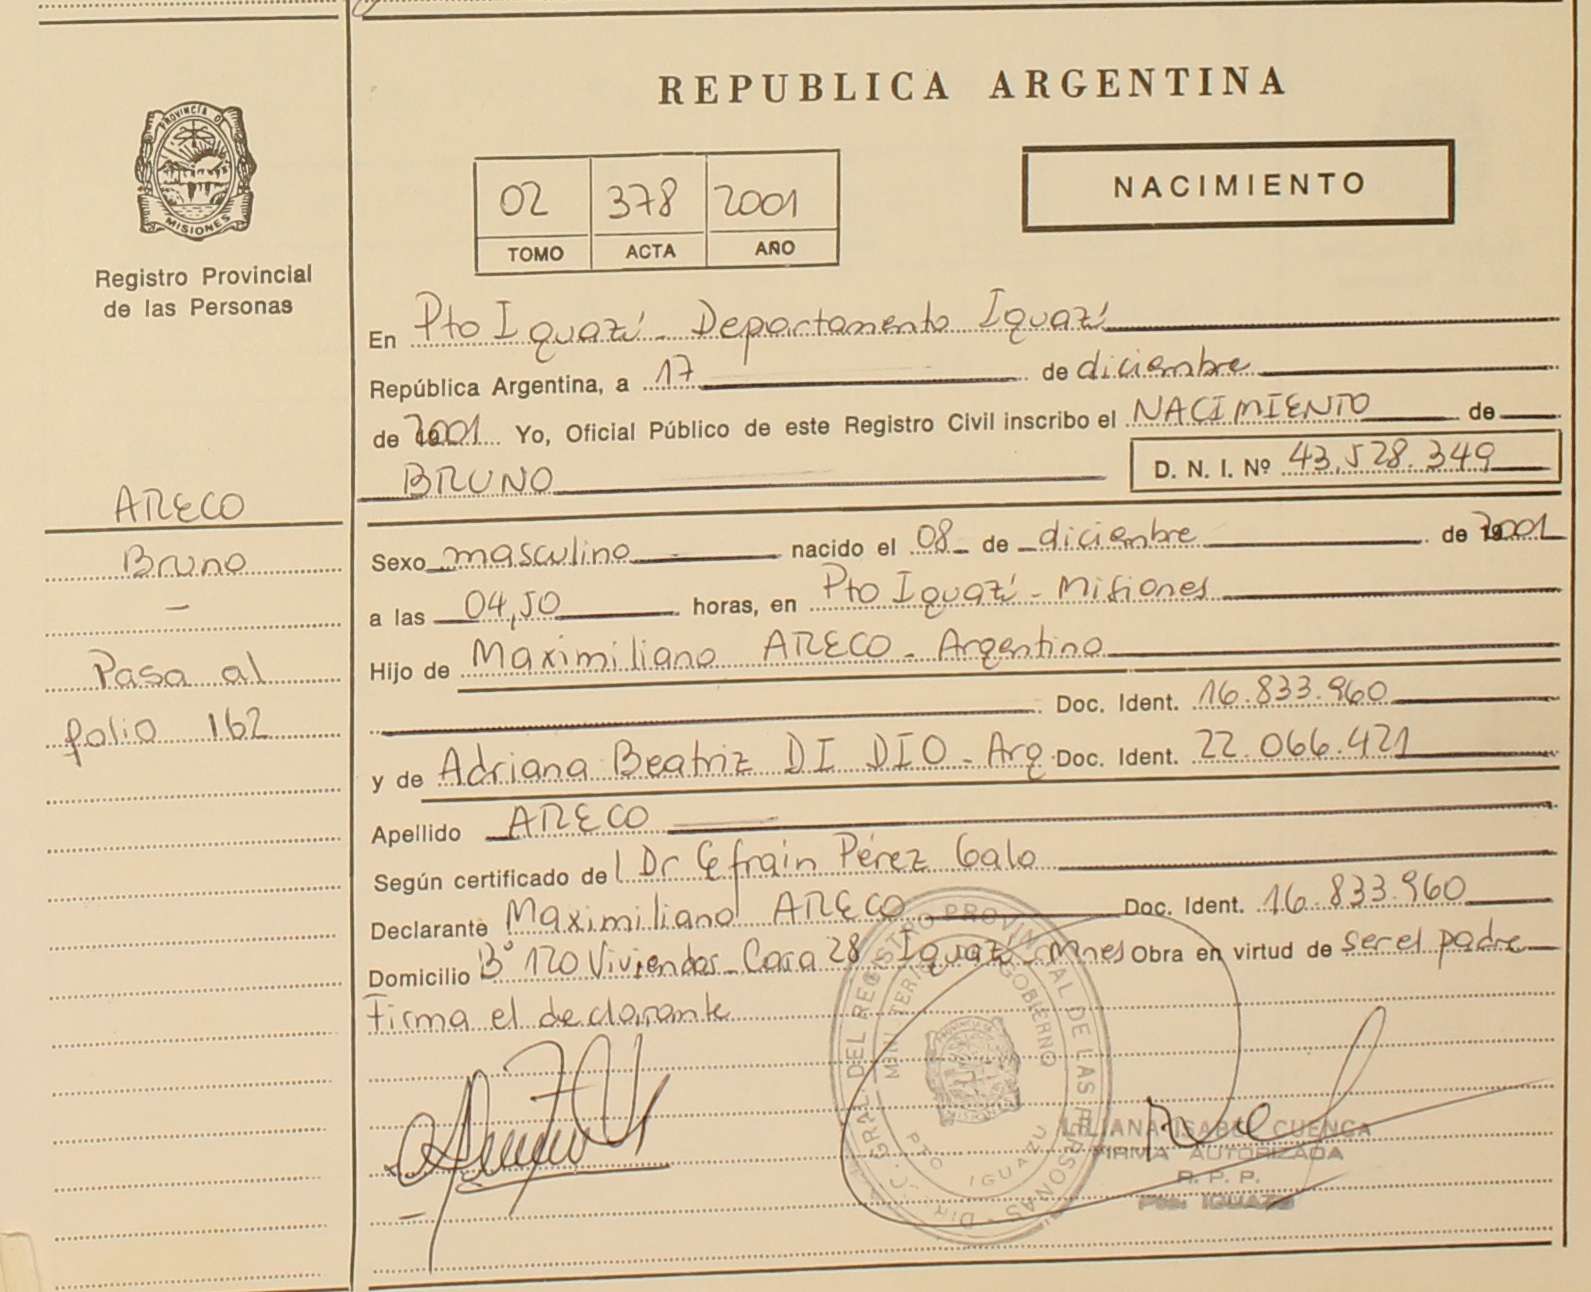 REPUBLICA ARGENTINA
PROVINCIA DE
MISIONES
Registro Provincial
de las Personas
NACIMIENTO
02 378 2001
TOMO ACTA AÑO
En Pto Iguazú - Departamento Iguazú
República Argentina, a 17 de diciembre
de 2001 Yo, Oficial Público de este Registro Civil inscribo el NACIMIENTO de
BRUNO D. N. I. Nº 43.528.349
ARECO
Bruno
-
Pasa al
folio 162
Sexo masculino nacido el 08 de diciembre de 2001
a las 04,50 horas, en Pto Iguazú - Misiones
Hijo de Maximiliano ARECO - Argentino
Doc. Ident. 16.833.960
y de Adriana Beatriz DI DIO - Arg Doc. Ident. 22.066.421
Apellido ARECO
Según certificado del Dr Efrain Pérez Galo
Declarante Maximiliano ARECO Doc. Ident. 16.833.960
Domicilio Bº 120 Viviendas - Casa 28 Iguazú - Mnes Obra en virtud de ser el padre
Firma el declarante
DIR. GRAL. DEL REGISTRO PROVINCIAL DE LAS PERSONAS
MINISTERIO GOBIERNO
PTO IGUAZU
LILIANA ISABEL CUENCA
FIRMA AUTORIZADA
R. P. P.
Pto. IGUAZU